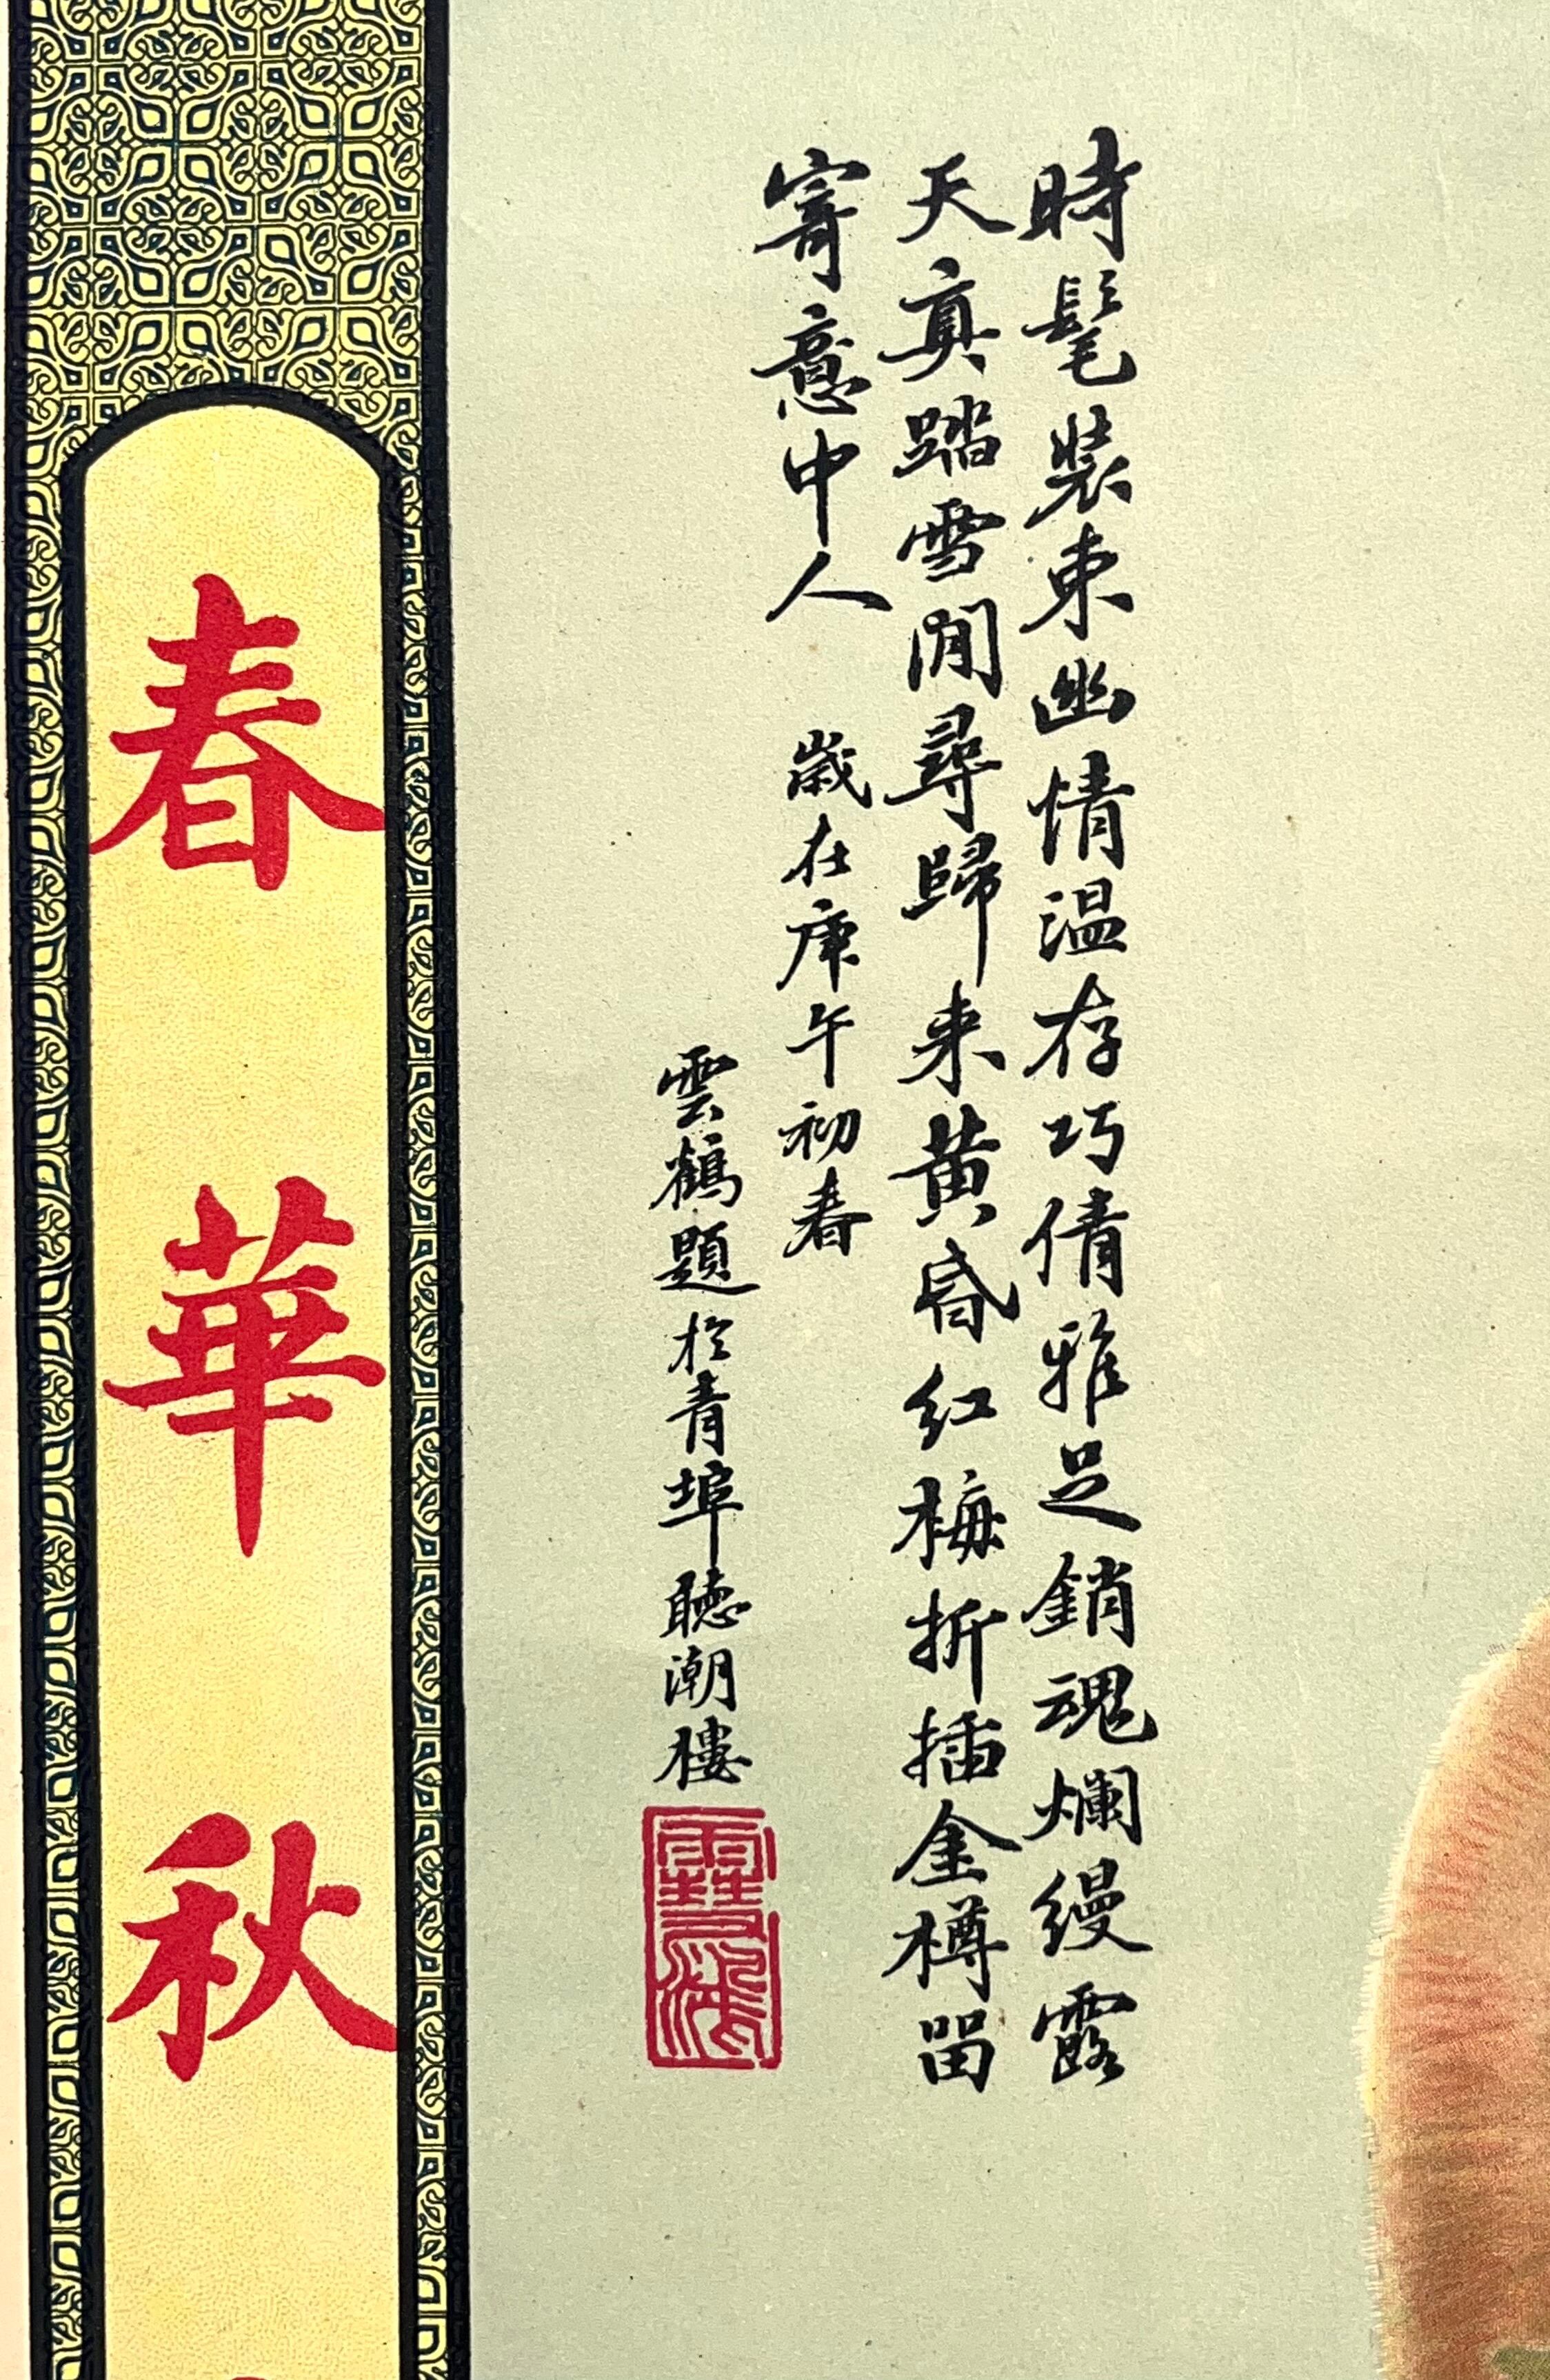 時髦裝束幽情温存巧倩雅足銷魂爛縵露
天真踏雪閒尋歸来黄昏红梅折插金樽留
寄意中人 歲在庚午初春
雲鶴題於青埠聴潮樓
春華秋